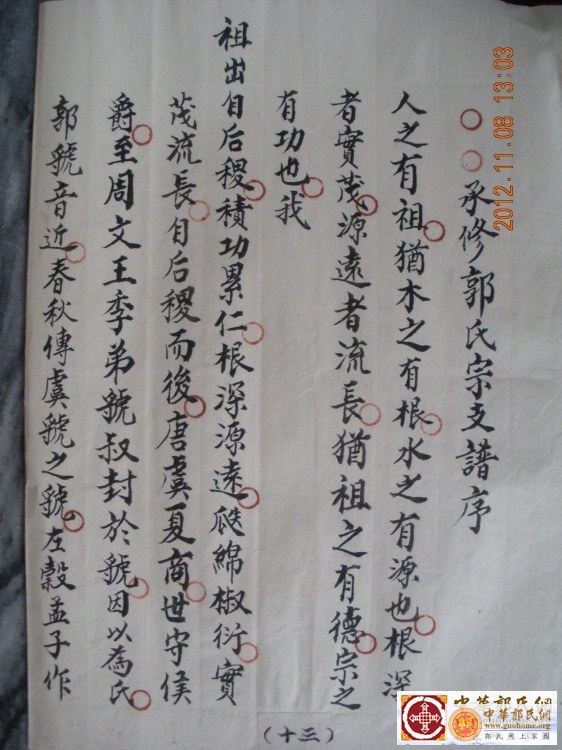 承修郭氏宗支譜序
人之有祖猶木之有根水之有源也根深
者實茂源遠者流長猶祖之有德宗之
有功也我
祖出自后稷積功累仁根深源遠瓞綿椒衍實
茂流長自后稷而後唐虞夏商世守侯
爵至周文王季弟虢叔封於虢因以為氏
郭虢音近春秋傳虞虢之虢左穀孟子作
(十三)
2012.11.08 13:03
中華郭氏網
www.guohome.org
郭氏網上家園